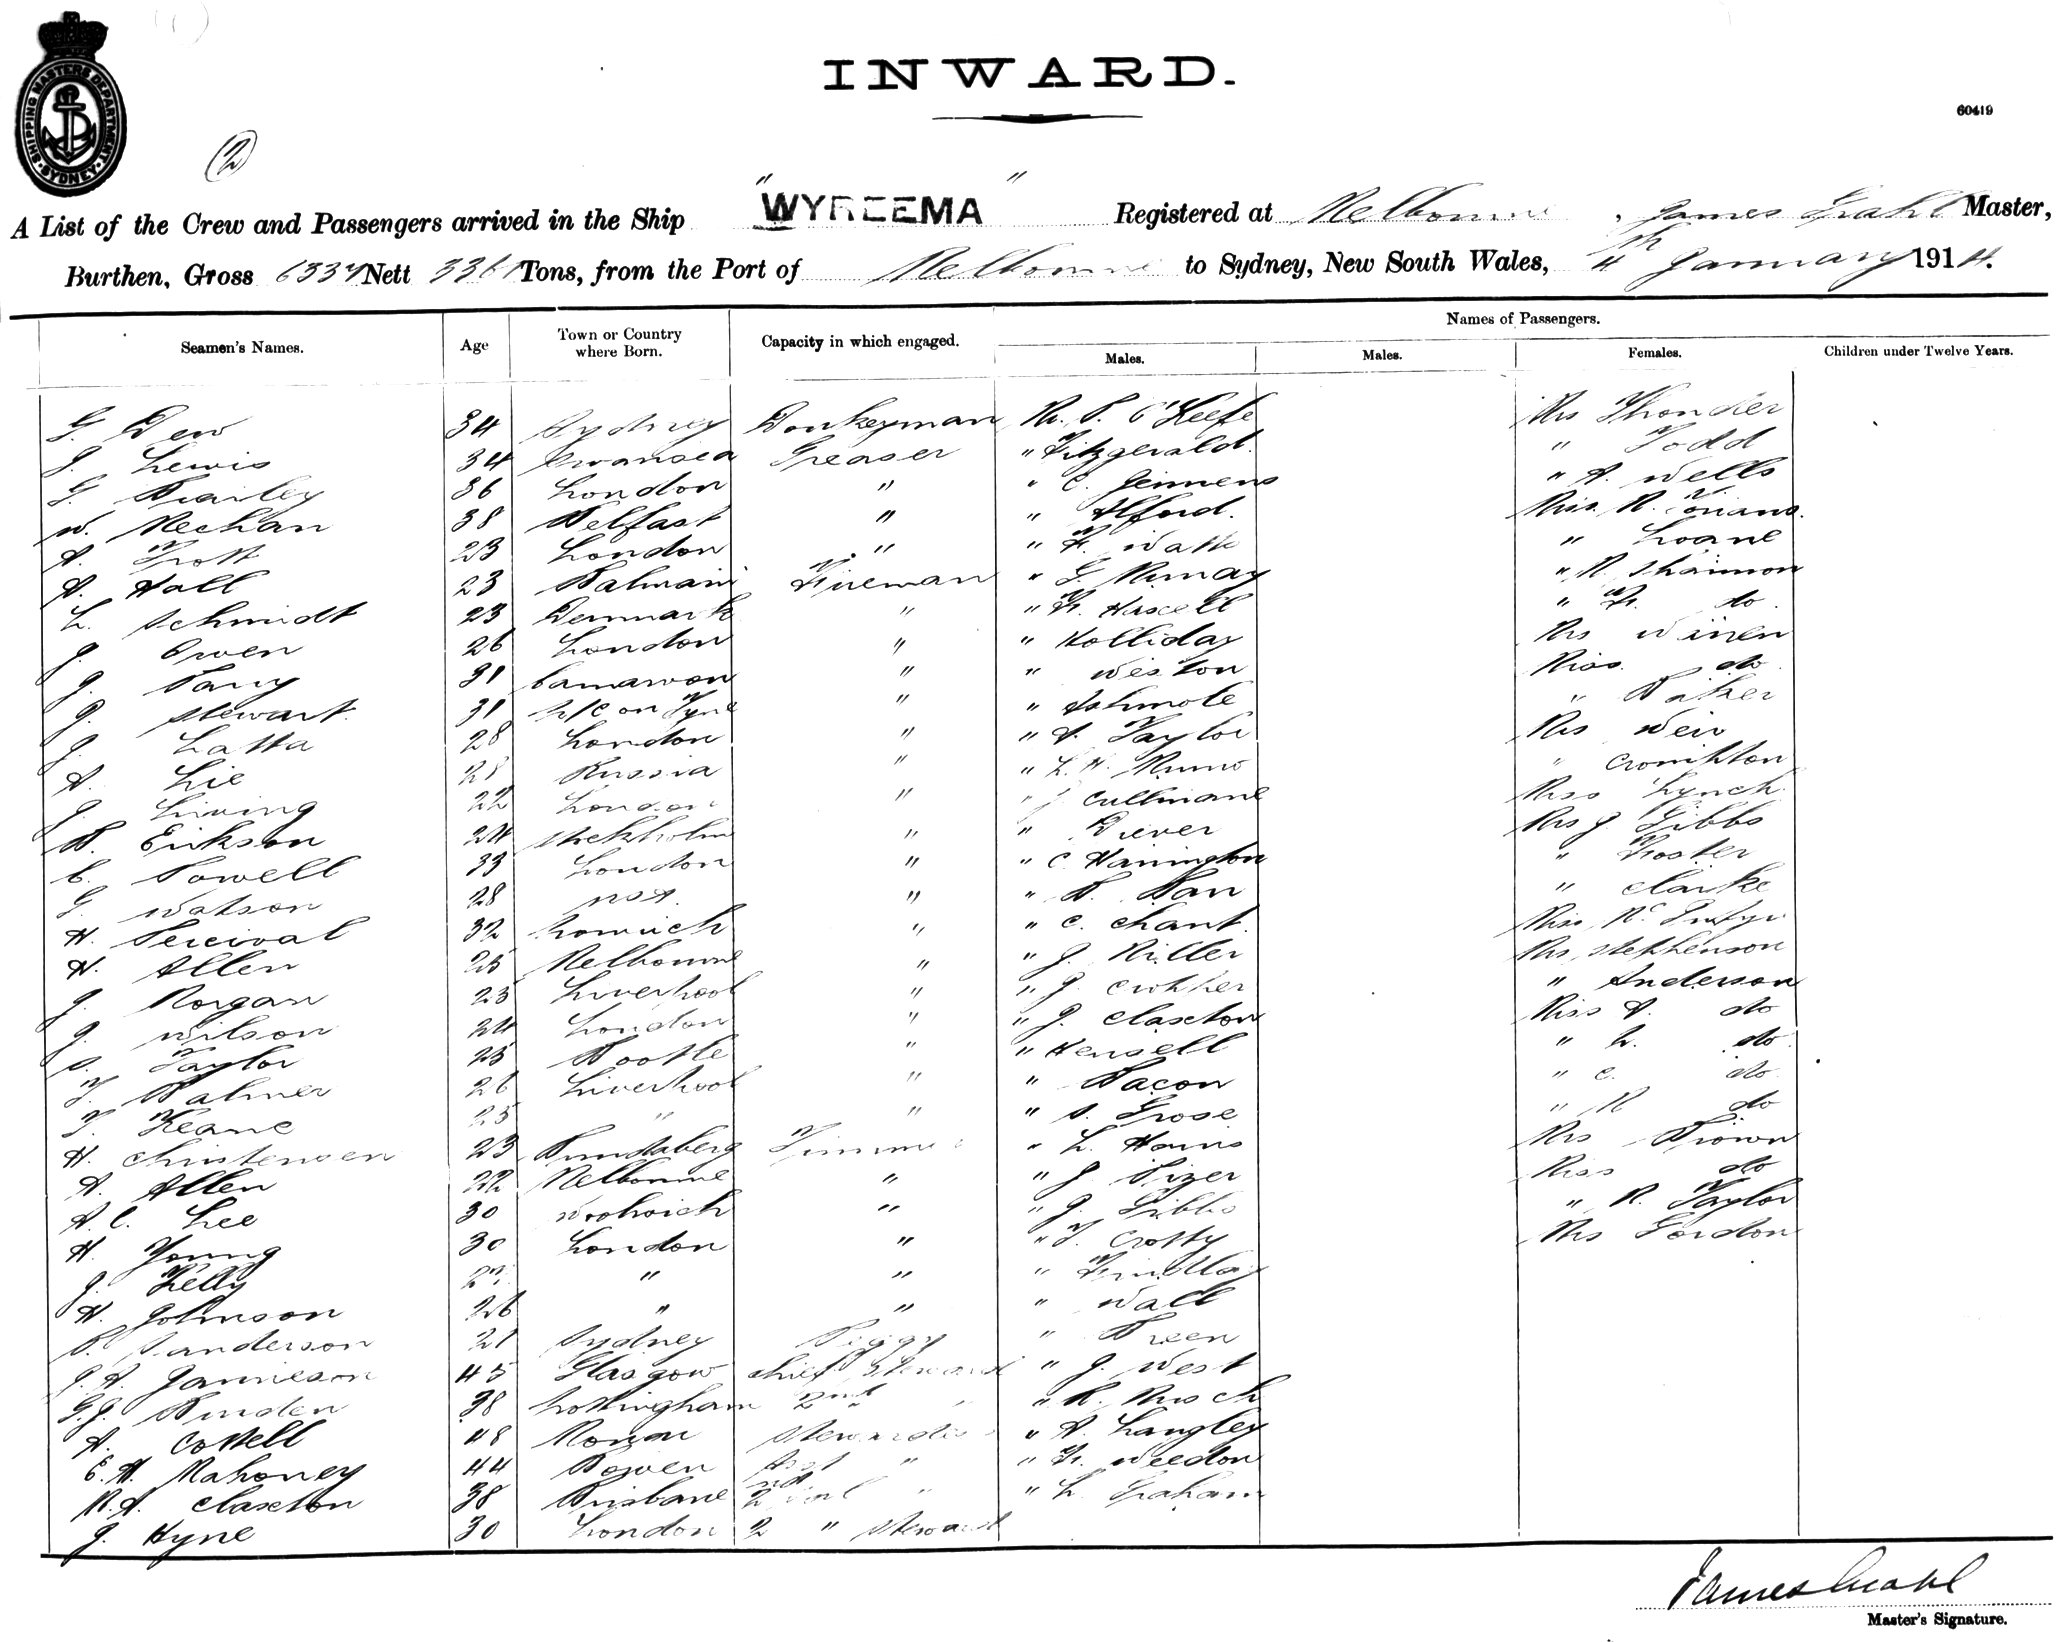 INWARD.
60419
SHIPPING MASTERS DEPARTMENT
SYDNEY
(2)
A List of the Crew and Passengers arrived in the Ship "WYREEMA" Registered at Melbourne, James Grahl Master,
Burthen, Gross 6337 Nett 3361 Tons, from the Port of Melbourne to Sydney, New South Wales, 4th January 1914.
Seamen's Names. Age Town or Country where Born. Capacity in which engaged. Names of Passengers.
Males. Males. Females. Children under Twelve Years.
G. Dew 34 Sydney Donkeyman Mr. P. O'Keefe Mrs Thonder
J. Lewis 34 Swansea Greaser " Fitzgerald. " Todd
G. Brailey 36 London " " C. " A. Wells
W. Meehan 38 Belfast " " Alford. Miss M.
A. Trott 23 London " " F. Watt " Loane
A. Hall 23 Balmain Fireman " G. Murray " M. Shannon
L. Schmidt 23 Denmark " " Fr. Hascell " Fr. do.
J. Owen 26 London " " Holliday Mrs Winen
J. Parry 31 Carnarvon " " Weston Miss do
J. Stewart. 31 N/C on Tyne " " Ashmole " Baker
J. Latta 28 London " " A. Taylor Mrs Weir
A. Lie 28 Russia " " L. H. Munro " Cromihton
J. Living 22 London " " J Cullinane Miss Lynch
B. Erikson 24 Stockholm " " Diever Mrs J Gibbs
C. Powell 33 London " " C Harrington " Foster
G. Watson 28 " " B. Barr " Clarke
H. Percival 32 " " C. Chant. Miss Mc
H. Allen 25 Melbourne " " J. Miller Mrs Stephenson
J. Morgan 25 Liverpool " " J. Crokker " Anderson
J. Wilson 24 London " " J. Claxton Miss A. do
S. Taylor 25 Bootle " " Hensell " L. do
T. Balmer 26 Liverpool " " Bacon " C. do
T. Keane 25 " " " S. Grose " M do
H. Christensen 23 Bundaberg Trimmer " L. Harris Mrs Brown
A. Allen 22 Melbourne " " J. Pizer Miss do
A. C. Lee 30 Woolwich " " J. Gibbs " M. Taylor
H. Young 30 London " " T. Crotty Mrs Gordon
J. Kelly " " " Findlay
H. Johnson 26 " " " Wall
P. Sanderson 21 Sydney Peggy " Breen
J. A. Jamieson 45 Glasgow Chief Steward " J. West
G. J. Burden 38 Nottingham 2nd " " R. Musch
A. Cottell 48 Stewardess " A. Langley
E. H. Mahoney 44 Bowen Asst " " Fr. Weedon
M. A. Claxton 38 Brisbane 2nd " " L. Graham
J. Hyne 30 London 2 " Steward
James Grahl
Master's Signature.